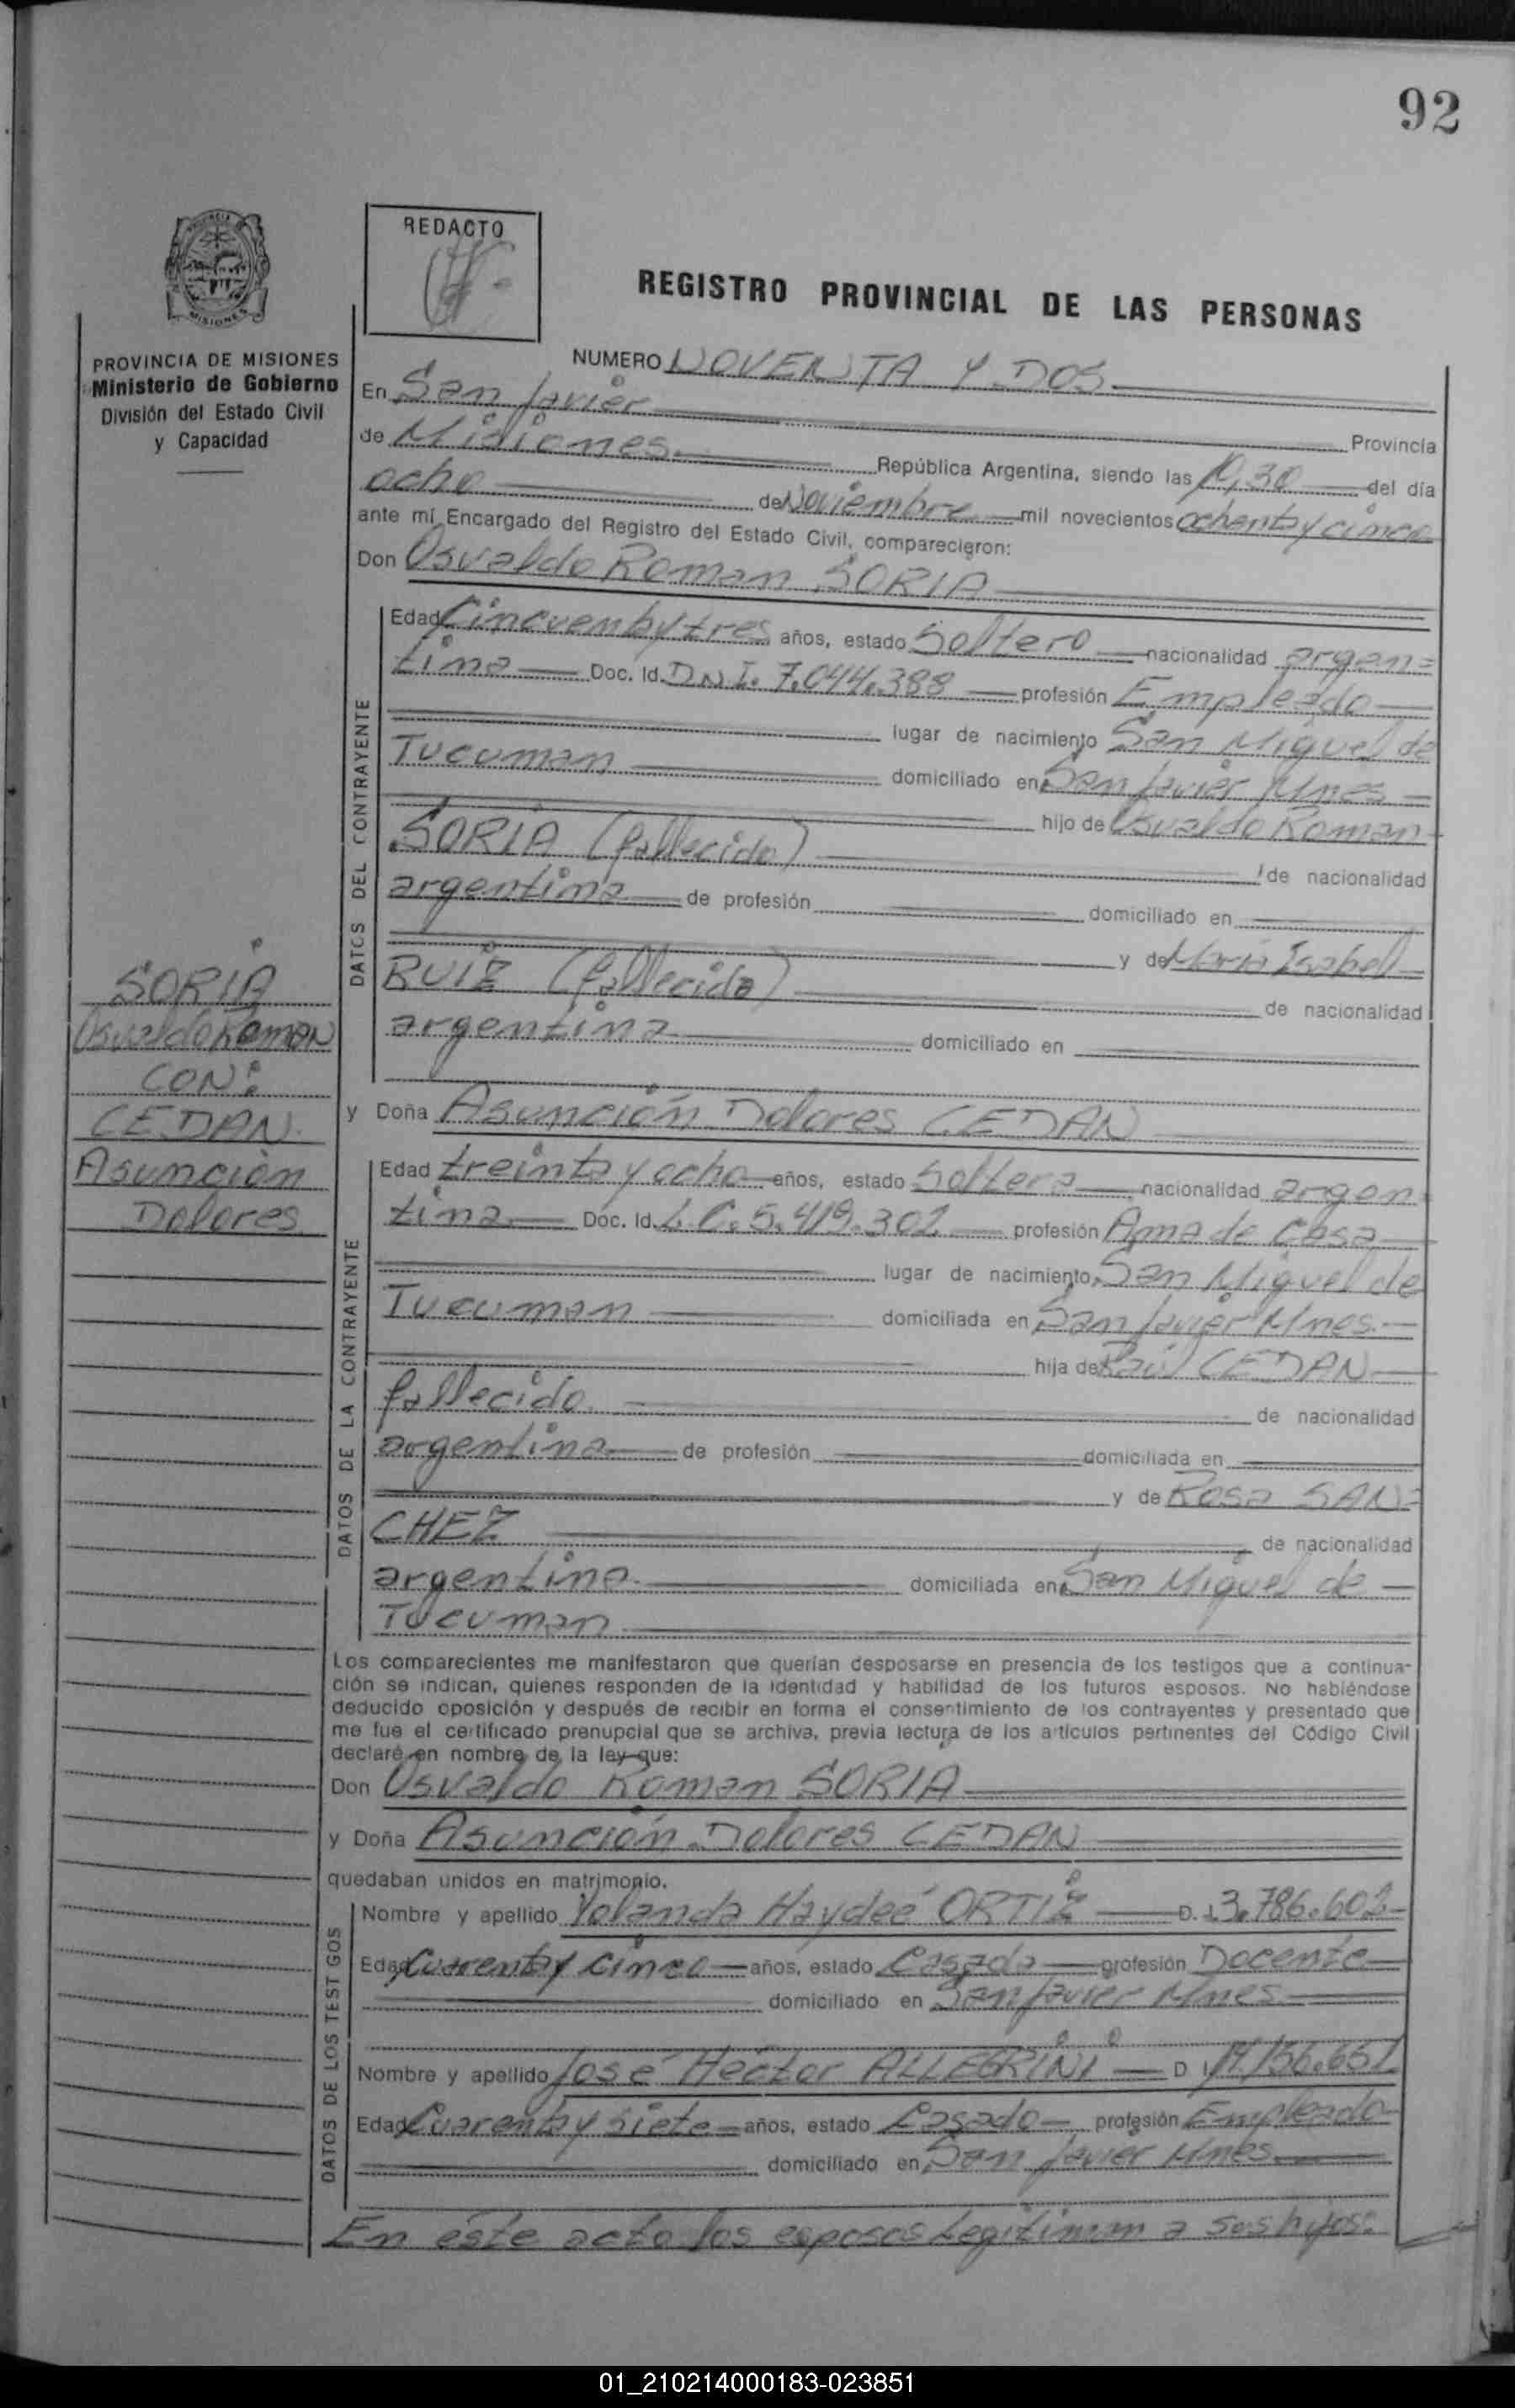 92
REDACTO
REGISTRO PROVINCIAL DE LAS PERSONAS
PROVINCIA DE MISIONES
Ministerio de Gobierno
División del Estado Civil
y Capacidad
MISIONES
NUMERO NOVENTA Y DOS
En San Javier Provincia
de Misiones República Argentina, siendo las 10,30 del día
ocho de Noviembre mil novecientos ochenta y cinco
ante mí Encargado del Registro del Estado Civil, comparecieron:
Don Osvaldo Roman SORIA
DATOS DEL CONTRAYENTE
Edad Cincuenta y tres años, estado Soltero nacionalidad argen=
tina Doc. Id. D.N.I. 7.044.388 profesión Empleado
lugar de nacimiento San Miguel de
Tucuman domiciliado en San Javier Mnes
hijo de Osvaldo Roman
SORIA (fallecido) de nacionalidad
argentina de profesión domiciliado en
y de Maria Isabel
RUIZ (fallecida) de nacionalidad
argentina domiciliado en
SORIA
Osvaldo Roman
CON:
CEDAN
Asunción
Dolores
y Doña Asunción Dolores CEDAN
DATOS DE LA CONTRAYENTE
Edad treinta y ocho años, estado Soltera nacionalidad argen
tina Doc. Id. L.C. 5.419.302 profesión Ama de Casa
lugar de nacimiento San Miguel de
Tucuman domiciliada en San Javier Mnes.
hija de Raúl CEDAN
fallecido de nacionalidad
argentina de profesión domiciliada en
y de Rosa SAN=
CHEZ de nacionalidad
argentina domiciliada en San Miguel de
Tucuman
Los comparecientes me manifestaron que querían desposarse en presencia de los testigos que a continua-
ción se indican, quienes responden de la identidad y habilidad de los futuros esposos. No habiéndose
deducido oposición y después de recibir en forma el consentimiento de los contrayentes y presentado que
me fue el certificado prenupcial que se archiva, previa lectura de los artículos pertinentes del Código Civil
declaré en nombre de la ley que:
Don Osvaldo Roman SORIA
y Doña Asunción Dolores CEDAN
quedaban unidos en matrimonio.
DATOS DE LOS TESTIGOS
Nombre y apellido Yolanda Haydeé ORTIZ D. I. 3.786.602
Edad Cuarenta y cinco años, estado Casada profesión Docente
domiciliado en San Javier Mnes
Nombre y apellido José Héctor ALLEGRINI D
Edad Cuarenta y siete años, estado Casado profesión Empleado
domiciliado en San Javier Mnes
En este acto los esposos Legitiman a sus hijos:
01_210214000183-023851